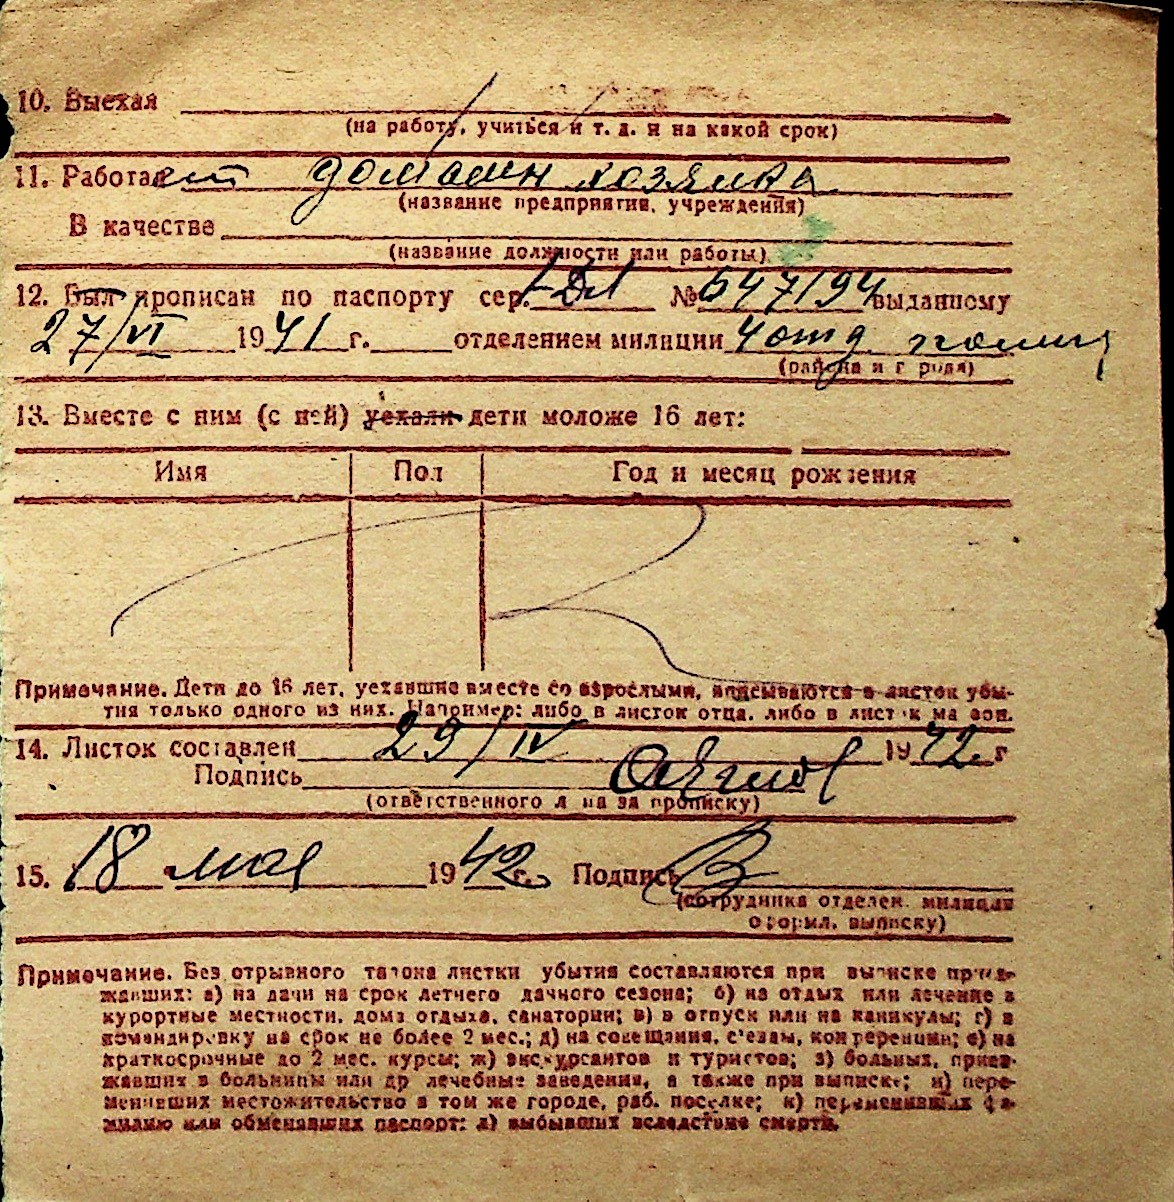 10. Выехал
(на работу, учиться и т. д. и на какой срок)
11. Работает домашн хозяйка
(название предприятия, учреждения)
В качестве
(название должности или работы)
12. Был прописан по паспорту сер. № 647194 выданному
27/VI 1941 г. отделением милиции 4 отд
(района и города)
13. Вместе с ним (с ней) уехали дети моложе 16 лет:
Имя Пол Год и месяц рождения
Примечание. Дети до 16 лет, уехавшие вместе со взрослыми, вписываются в листок убы-
тия только одного из них. Например: либо в листок отца, либо в листок матери.
14. Листок составлен 29/IV 1942 г
Подпись
(ответственного лица за прописку)
15. 18 мая 1942 г. Подпись
(сотрудника отделен. милиции
оформл. выписку)
Примечание. Без отрывного талона листки убытия составляются при выписке приез-
жавших: а) на дачи на срок летнего дачного сезона; б) на отдых или лечение в
курортные местности, дома отдыха, санатории; в) в отпуск или на каникулы; г) в
командировку на срок не более 2 мес.; д) на совещания, с'езды, конференции; е) на
краткосрочные до 2 мес. курсы; ж) экскурсантов и туристов; з) больных, приез-
жавших в больницы или др лечебные заведения, а также при выписке; и) пере-
менивших местожительство в том же городе, раб. поселке; к) переменивших фа-
милию или обменявших паспорт; л) выбывших вследствие смерти.